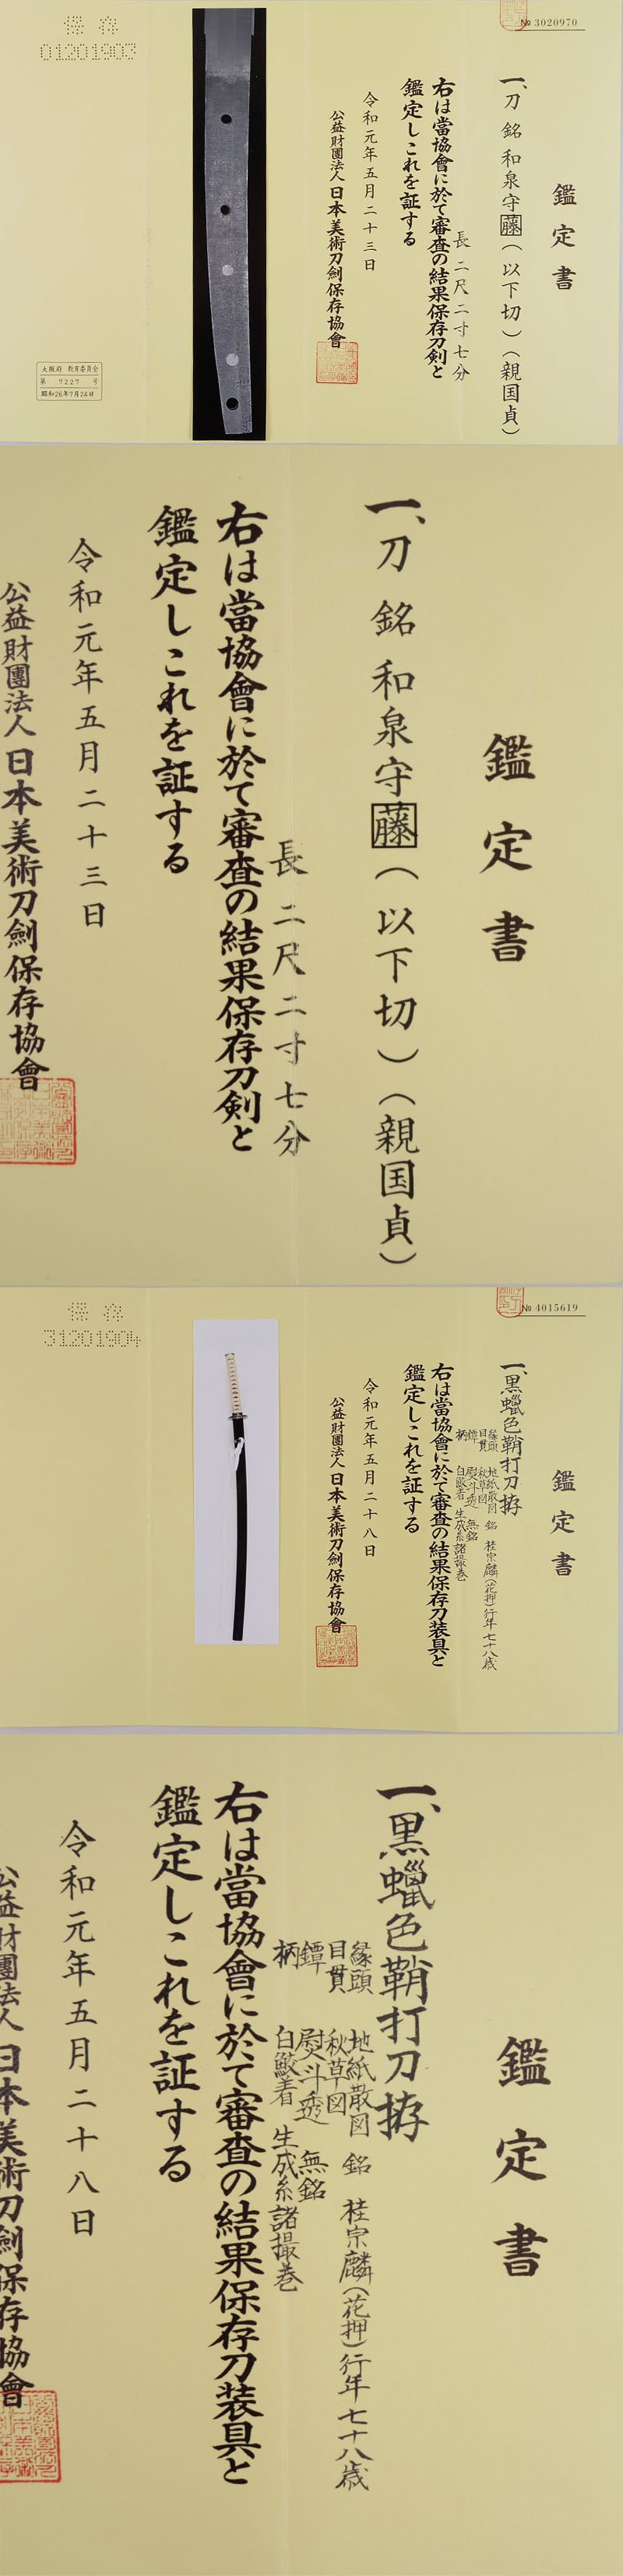 № 3020970
鑑定書
一、刀 銘 和泉守藤(以下切)(親国貞)
長 二尺二寸七分
右は當協會に於て審査の結果保存刀剣と
鑑定しこれを証する
令和元年五月二十三日
公益財團法人 日本美術刀劍保存協會
保存
01201903
大阪府 教育委員会
第 7227 号
昭和26年7月24日
鑑定書
一、刀 銘 和泉守藤(以下切)(親国貞)
長 二尺二寸七分
右は當協會に於て審査の結果保存刀剣と
鑑定しこれを証する
令和元年五月二十三日
公益財團法人 日本美術刀劍保存協會
№ 4015619
鑑定書
一、黒蠟色鞘打刀拵
縁頭 地紙散図 銘 桂宗麟(花押)行年七十八歳
目貫 秋草図
鐔 熨斗透 無銘
柄 白鮫着 生成糸諸撮巻
右は當協會に於て審査の結果保存刀装具と
鑑定しこれを証する
令和元年五月二十八日
公益財團法人 日本美術刀劍保存協會
保存
31201904
鑑定書
一、黒蠟色鞘打刀拵
縁頭 地紙散図 銘 桂宗麟(花押)行年七十八歳
目貫 秋草図
鐔 熨斗透 無銘
柄 白鮫着 生成糸諸撮巻
右は當協會に於て審査の結果保存刀装具と
鑑定しこれを証する
令和元年五月二十八日
公益財團法人 日本美術刀劍保存協會